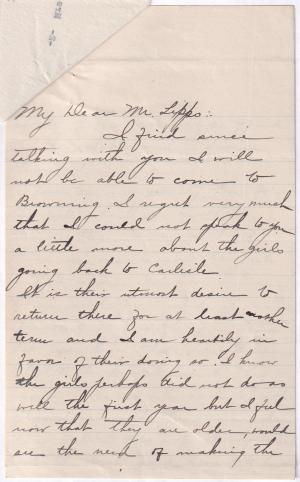 My Dear Mr. Lipps:
I find since
talking with you I will
not be able to come to
Browning. I regret very much
that I could not speak to you
a little more about the girls
going back to Carlisle.
It is their utmost desire to
return there for at least another
term and I am heartily in
favor of their doing so. I know
the girls perhaps did not do as
well the first year but I feel
now that they are older, would
see the need of making the